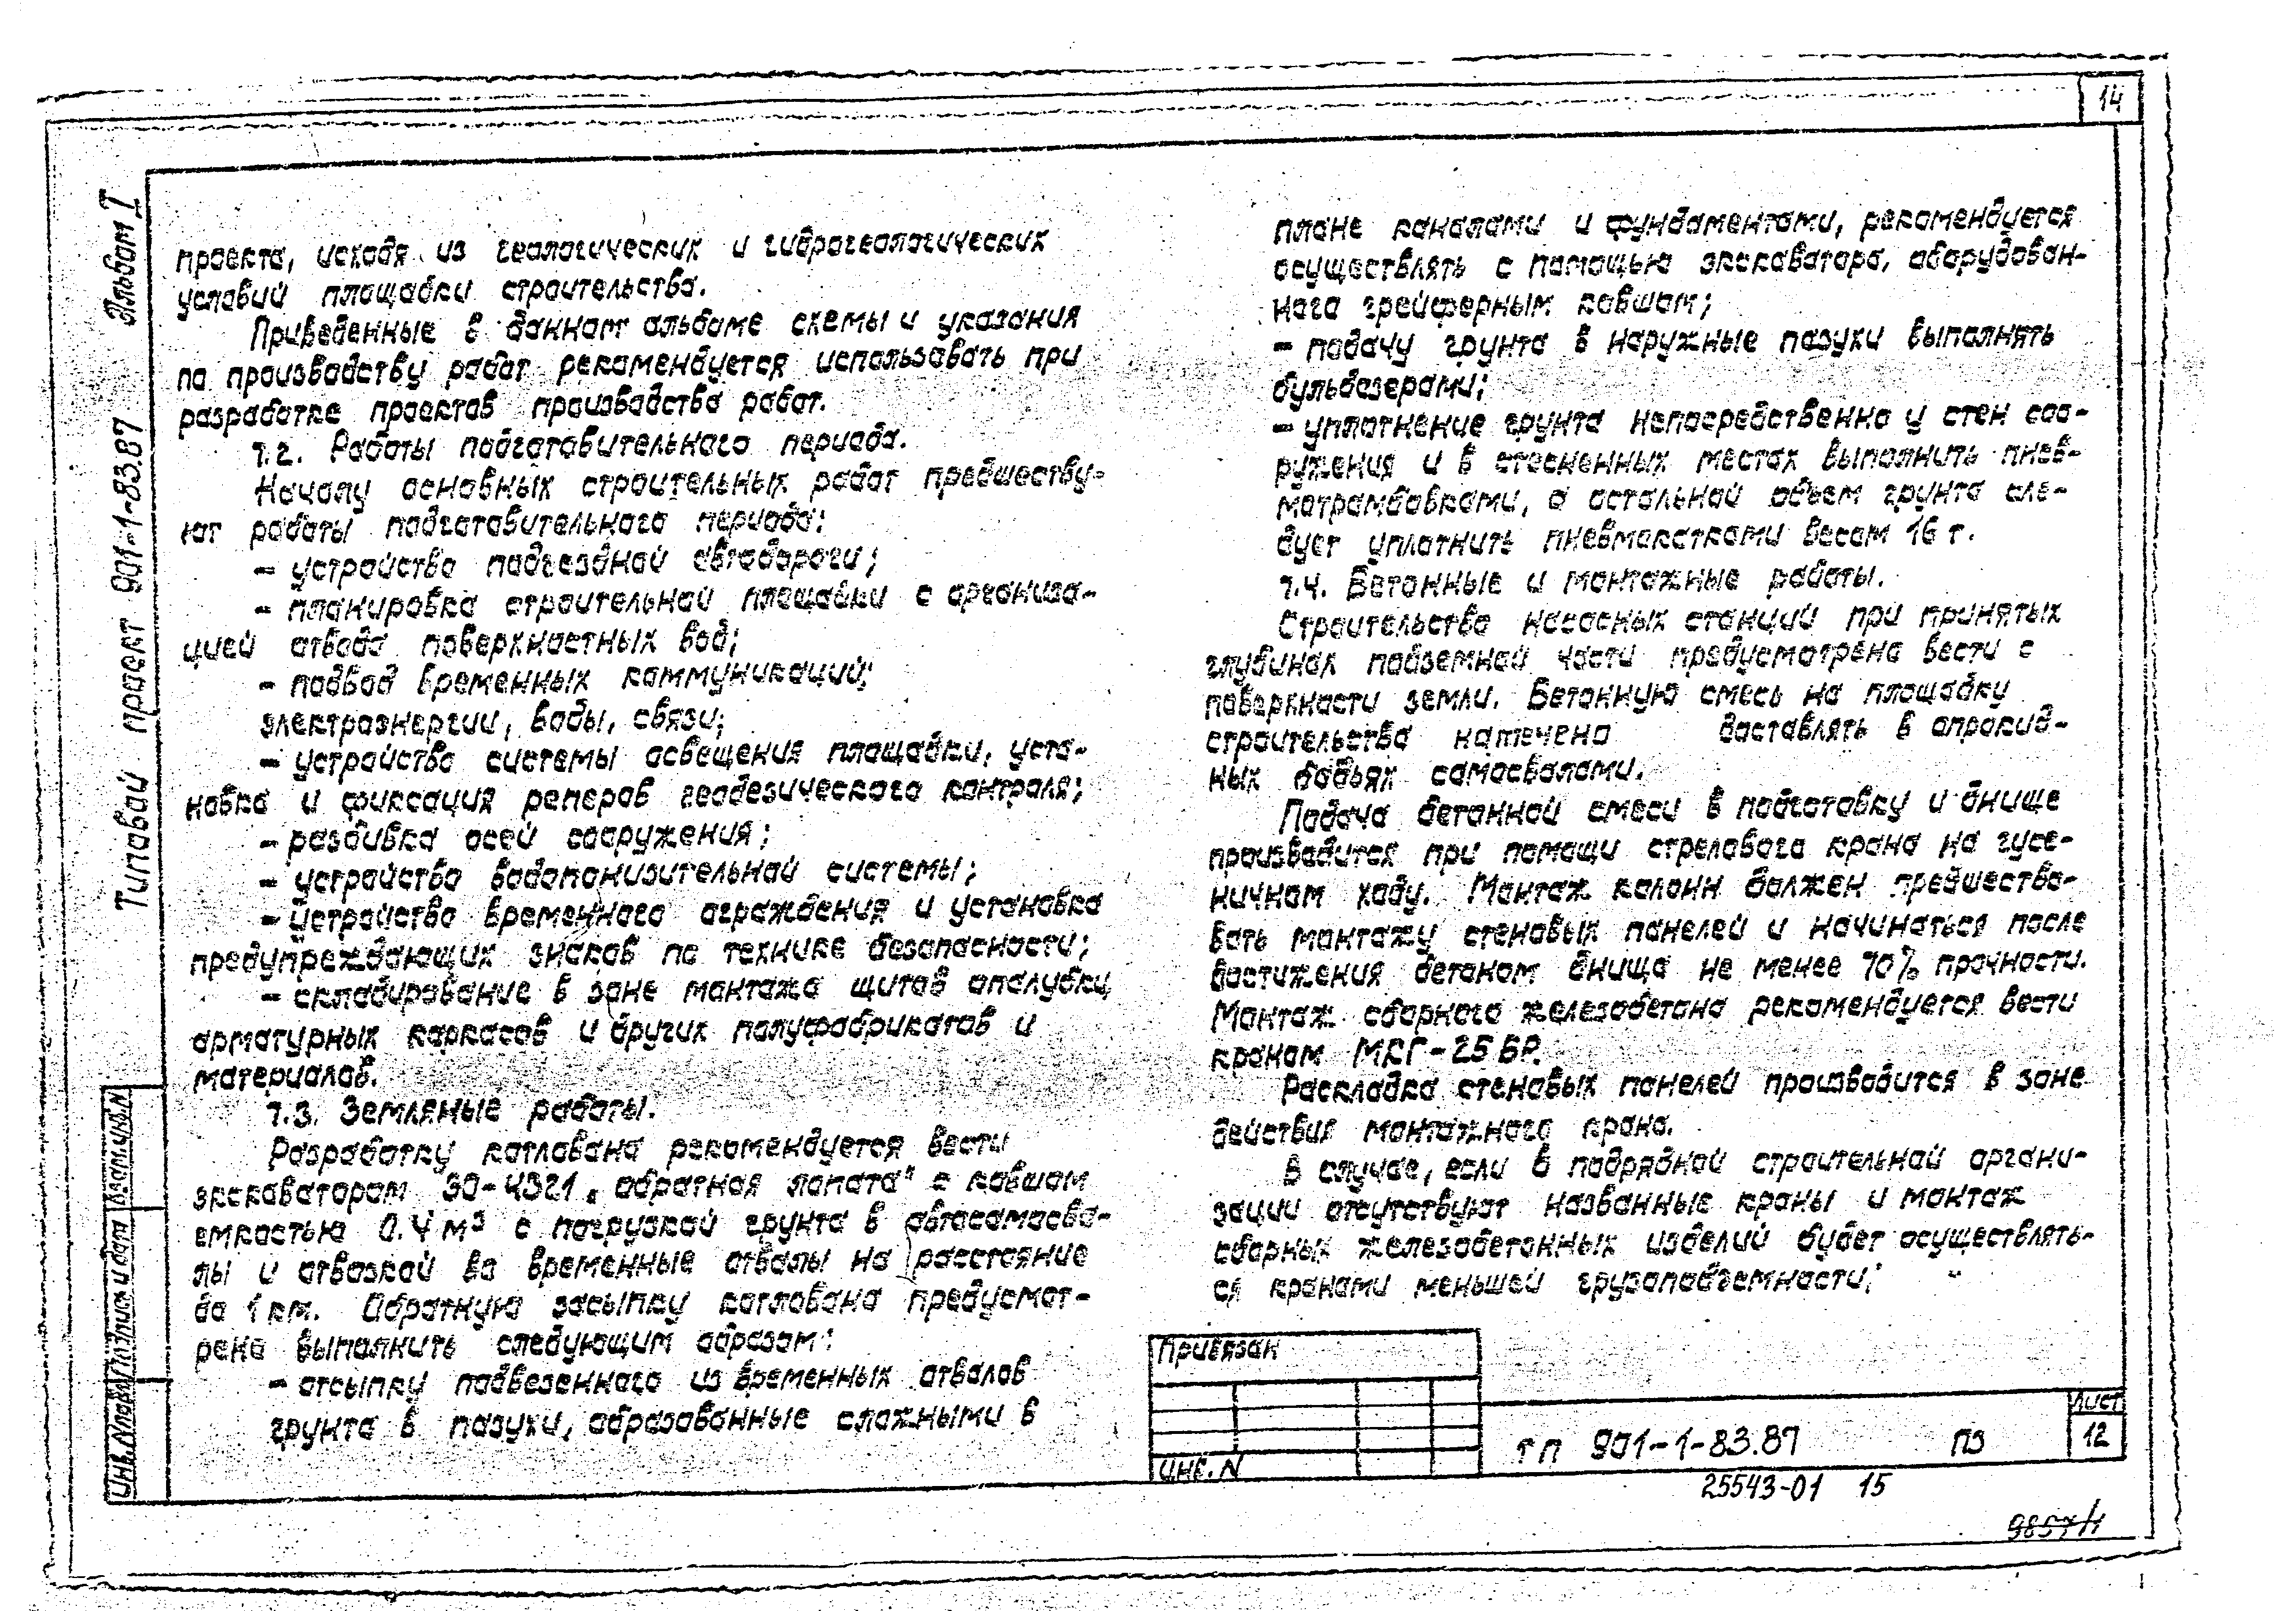 14
Альбом I
Типовой проект 901-1-83.87
проекта, исходя из геологических и гидрогеологических
условий площадки строительства.
Приведенные в данном альбоме схемы и указания
по производству работ рекомендуется использовать при
разработке проектов производства работ.
7.2. Работы подготовительного периода.
Началу основных строительных работ предшеству-
ют работы подготовительного периода:
- устройство подъездной автодороги;
- планировка строительной площадки с организа-
цией отвода поверхностных вод;
- подвод временных коммуникаций;
электроэнергии, воды, связи;
- устройство системы освещения площадки, уста-
новка и фиксация реперов геодезического контроля;
- разбивка осей сооружения;
- устройство водопонизительной системы;
- устройство временного ограждения и установка
предупреждающих знаков по технике безопасности;
- складирование в зоне монтажа щитов опалубки,
арматурных каркасов и других полуфабрикатов и
материалов.
7.3. Земляные работы.
Разработку котлована рекомендуется вести
экскаватором ЭО-4321 „обратная лопата" с ковшом
емкостью 0.4 м³ с погрузкой грунта в автосамосва-
лы и отвозкой во временные отвалы на расстояние
до 1 км. Обратную засыпку котлована предусмот-
рено выполнить следующим образом:
- отсыпку подвезенного из временных отвалов
грунта в пазухи, образованные сложными в
плане каналами и фундаментами, рекомендуется
осуществлять с помощью экскаватора, оборудован-
ного грейферным ковшом;
- подачу грунта в наружные пазухи выполнять
бульдозерами;
- уплотнение грунта непосредственно у стен соо-
ружения и в стесненных местах выполнить пнев-
мотрамбовками, а остальной объем грунта сле-
дует уплотнить пневмокатками весом 16 т.
7.4. Бетонные и монтажные работы.
Строительство насосных станций при принятых
глубинах подземной части предусмотрено вести с
поверхности земли. Бетонную смесь на площадку
строительства намечено доставлять в опрокид-
ных бадьях самосвалами.
Подача бетонной смеси в подготовку и днище
производится при помощи стрелового крана на гусе-
ничном ходу. Монтаж колонн должен предшество-
вать монтажу стеновых панелей и начинаться после
достижения бетоном днища не менее 70% прочности.
Монтаж сборного железобетона рекомендуется вести
краном МКГ-25 БР.
Раскладка стеновых панелей производится в зоне
действия монтажного крана.
В случае, если в подрядной строительной органи-
зации отсутствуют названные краны и монтаж
сборных железобетонных изделий будет осуществлять-
ся кранами меньшей грузоподъемности;
Инв.Nподл Подпись и дата Взам.инв.N
Привязан
Инв. N
ТП 901-1-83.87 ПЗ
Лист
12
25543-01 15